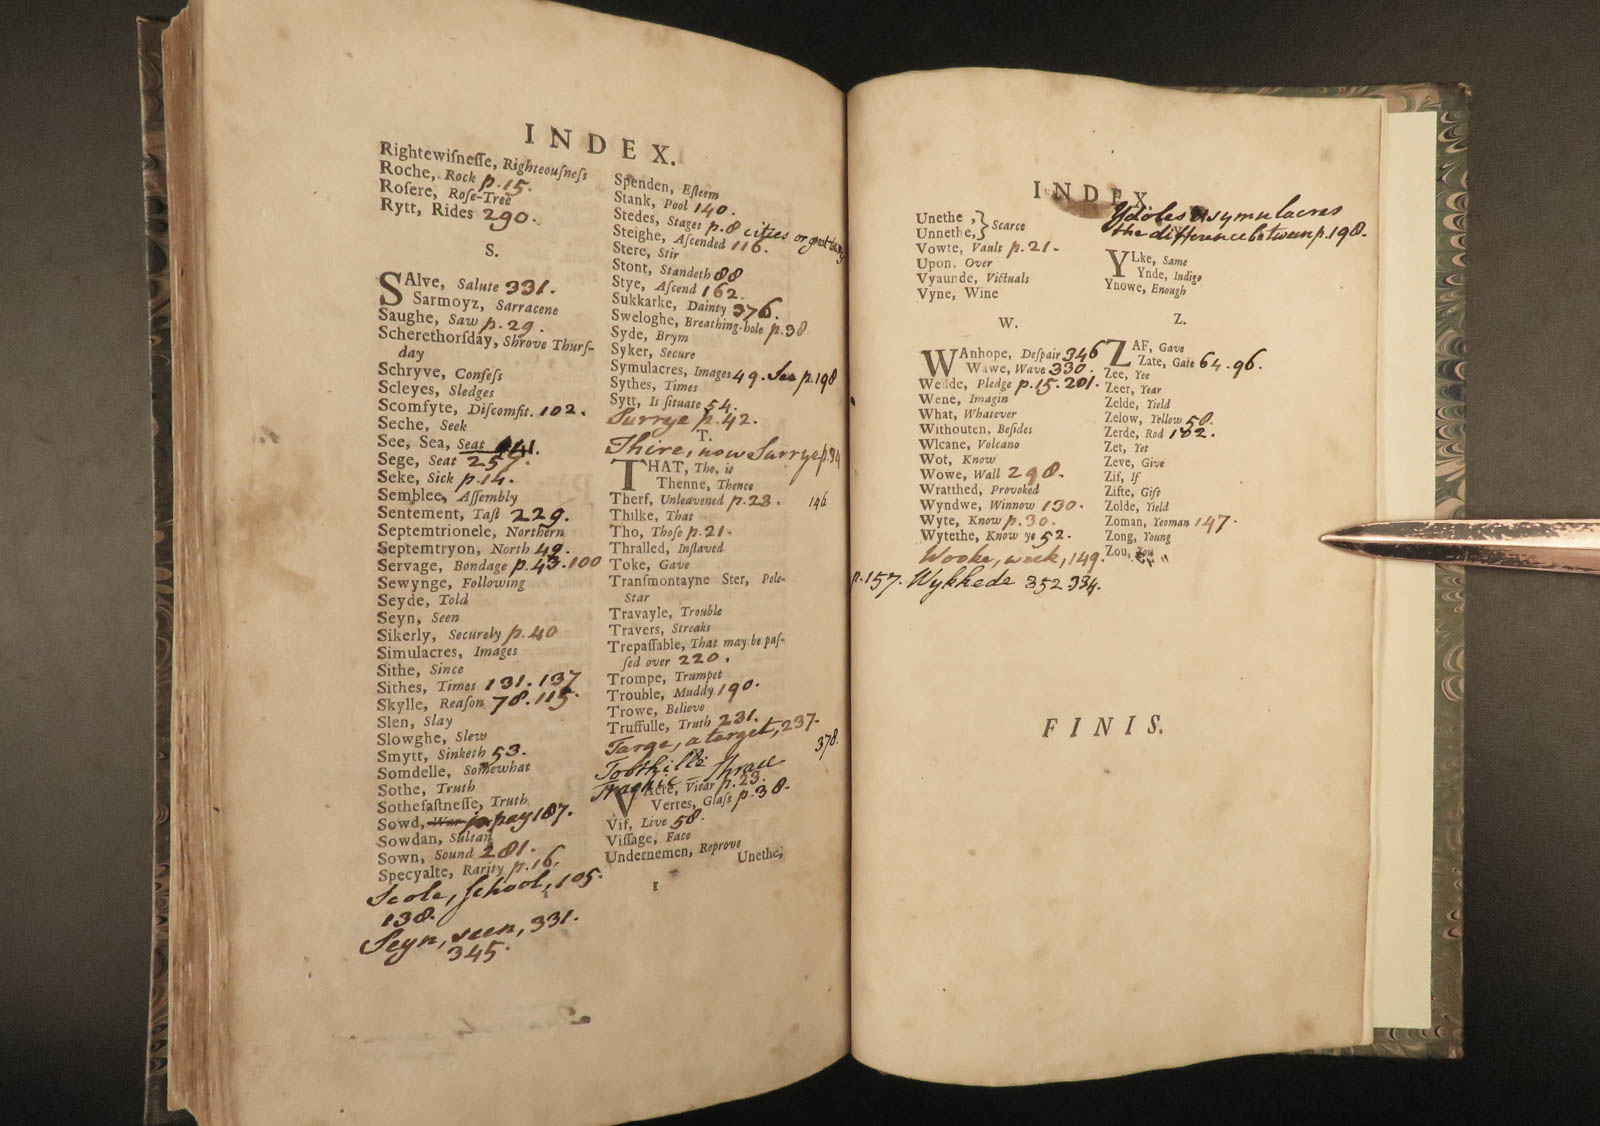 INDEX.
Rightewiſneſſe, Righteouſneſs
Roche, Rock p. 15.
Roſere, Roſe-Tree
Rytt, Rides 290.
S.
SAlve, Salute 331.
Sarmoyz, Sarracene
Saughe, Saw p. 29.
Scherethorſday, Shrove Thurſ-
day
Schryve, Confeſs
Scleyes, Sledges
Scomfyte, Diſcomfit. 102.
Seche, Seek
See, Sea, Seat 141.
Sege, Seat 257.
Seke, Sick p. 14.
Semblee, Aſſembly
Sentement, Taſt 229.
Septemtrionele, Northern
Septemtryon, North 49.
Servage, Bondage p. 43. 100
Sewynge, Following
Seyde, Told
Seyn, Seen
Sikerly, Securely p. 40
Simulacres, Images
Sithe, Since
Sithes, Times 131. 137
Skylle, Reaſon 78. 115.
Slen, Slay
Slowghe, Slew
Smytt, Sinketh 53.
Somdelle, Somewhat
Sothe, Truth
Sothefaſtneſſe, Truth
Sowd, pay 187.
Sowdan, Sultan
Sown, Sound 281.
Specyalte, Rarity p. 16.
Scole, ſchool, 105.
138.
Seyn, seen, 331.
345.
Spenden, Eſteem
Stank, Pool 140.
Stedes, Stages p. 8 cities or great
Steighe, Aſcended 116.
Stere, Stir
Stont, Standeth 88
Stye, Aſcend 162.
Sukkarke, Dainty 376.
Sweloghe, Breathing-hole p. 38
Syde, Brym
Syker, Secure
Symulacres, Images 49. See p. 198
Sythes, Times
Sytt, Is ſituate 54.
Surrye p. 42.
T.
Thire, now Surrye p. 34
THAT, The, it
Thenne, Thence
Therf, Unleavened p. 23. 146
Thilke, That
Tho, Thoſe p. 21.
Thralled, Inſlaved
Toke, Gave
Tranſmontayne Ster, Pole-
Star
Travayle, Trouble
Travers, Streaks
Trepaſſable, That may be paſ-
ſed over 220.
Trompe, Trumpet
Trouble, Muddy 190.
Trowe, Believe
Truffulle, Truth 231.
Targe, a target, 237.
378.
VAcre, Vicar p. 23.
Verres, Glaſs p. 38.
Vif, Live 58.
Viſſage, Face
Undernemen, Reprove
Unethe,
I
INDEX
Unethe,
Unnethe, } Scarce
Vowte, Vault p. 21.
Upon, Over
Vyaunde, Victuals
Vyne, Wine
W.
WAnhope, Deſpair 346
Wawe, Wave 330.
Wedde, Pledge p. 15. 201.
Wene, Imagin
What, Whatever
Withouten, Beſides
Wlcane, Volcano
Wot, Know
Wowe, Wall 298.
Wratthed, Provoked
Wyndwe, Winnow 130.
Wyte, Know p. 30.
Wytethe, Know ye 52.
Wooke, week, 149.
p. 157. Wykkede 352 334.
Ydoles & symulacres
the difference between p. 198.
YLke, Same
Ynde, Indigo
Ynowe, Enough
Z.
ZAF, Gave
Zate, Gate 64. 96.
Zee, Yee
Zeer, Year
Zelde, Yield
Zelow, Yellow 58.
Zerde, Rod 182.
Zet, Yet
Zeve, Give
Zif, If
Zifte, Gift
Zolde, Yield
Zoman, Yeoman 147.
Zong, Young
Zou, You
FINIS.